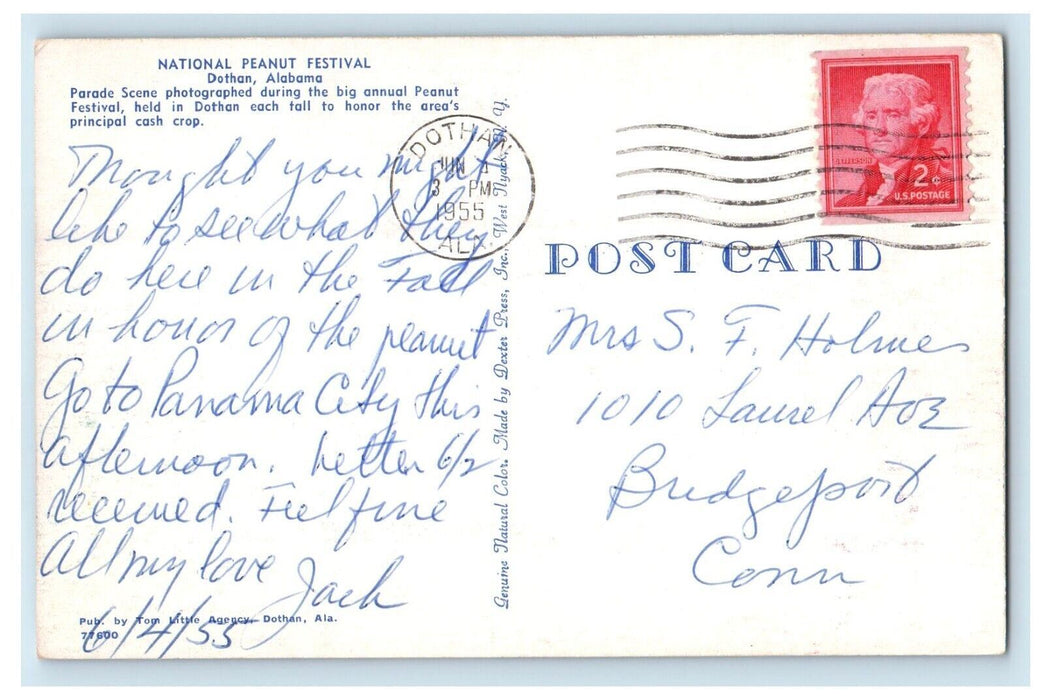 NATIONAL PEANUT FESTIVAL
Dothan, Alabama
Parade Scene photographed during the big annual Peanut
Festival, held in Dothan each fall to honor the area's
principal cash crop.
Thought you might
like to see what they
do here in the Fall
in honor of the peanut
Go to Panama City this
afternoon. Letter 6/2
received. Feel fine
All my love Jack
6/4/55
Pub. by Tom Little Agency, Dothan, Ala.
77600
Genuine Natural Color. Made by Dexter Press, Inc. West Nyack, N. Y.
DOTHAN
JUN
3 PM
1955
ALA.
JEFFERSON
2¢
U.S. POSTAGE
POST CARD
Mrs S. F. Holmes
1010 Laurel Ave
Bridgeport
Conn